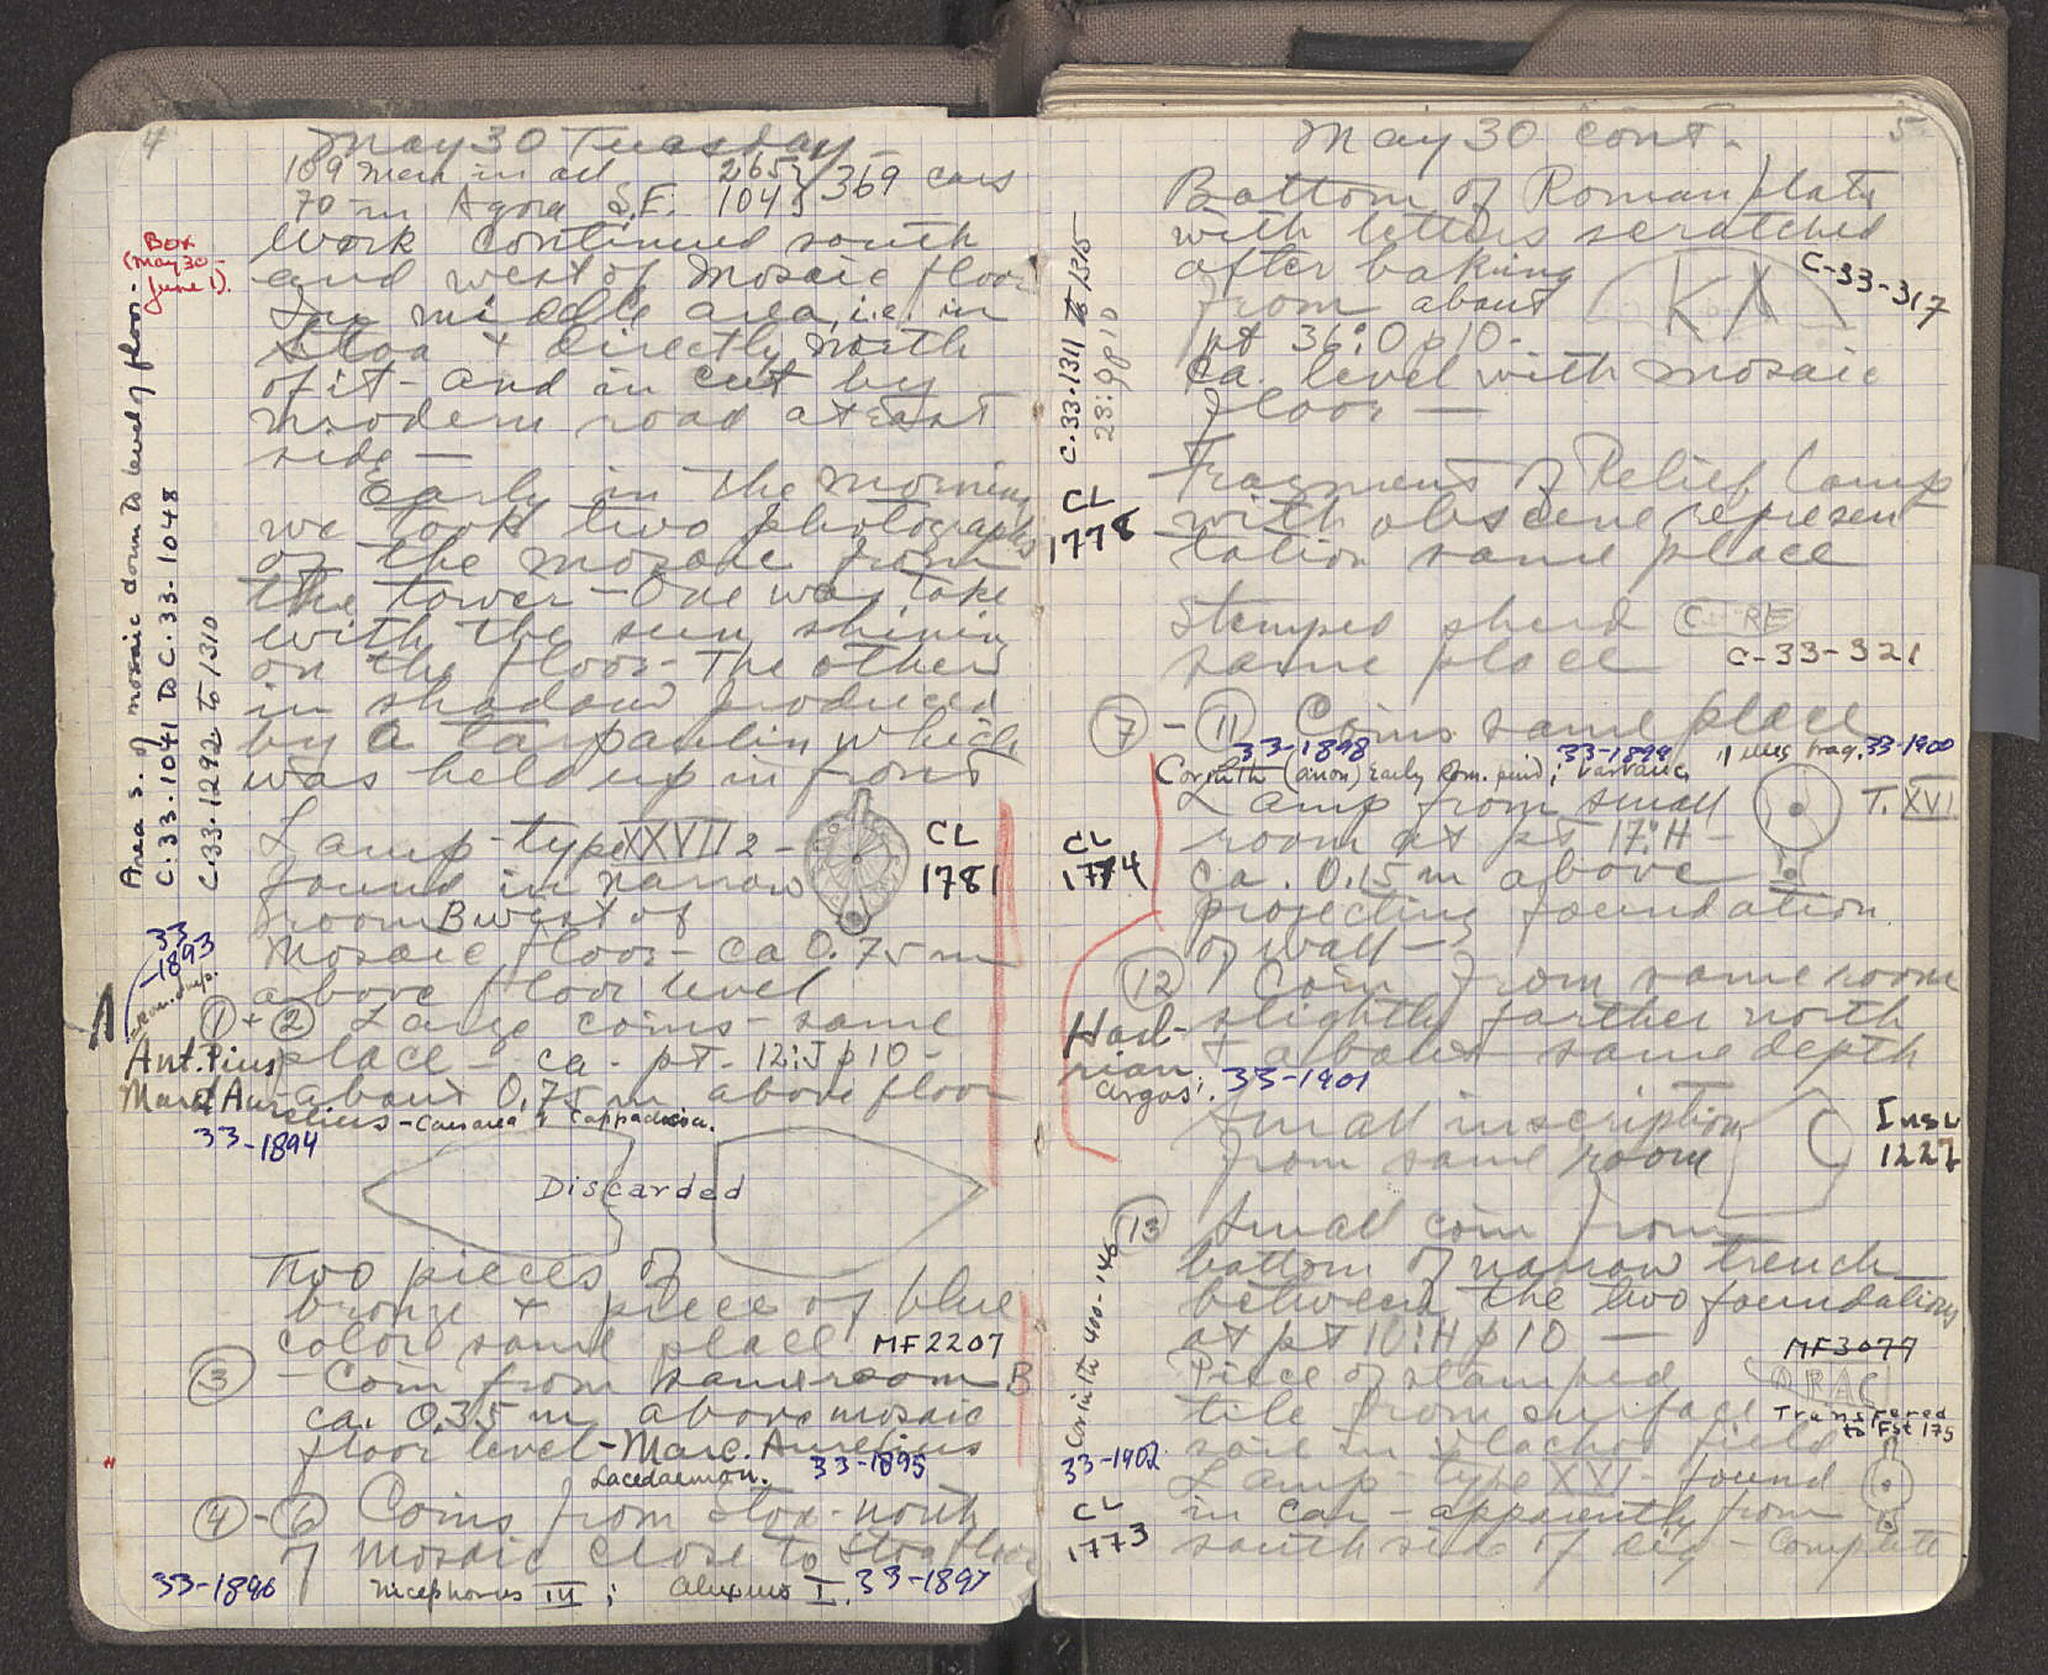 4
May 30 Tuesday -
109 men in all 265 } 369 cars
70 in Agora S.E. 104
Box
(May 30 -
June 1).
Work continued south
and west of Mosaic floor
In middle area, i.e. in
Stoa + directly north
of it - and in cut by
modern road at East
side -
Early in the morning
we took two photographs
of the mosaic from
the tower - One was take
with the sun shining
on the floor - The other
in shadow produced
by a tarpaulin which
was held up in front
Area S. of mosaic down to level of floor.
C.33.1041 to C.33.1048
C.33.1292 to 1310
Lamp - type XXVII 2 - CL
found in narrow 1781
room B west of
Mosaic floor - ca 0.75 m
above floor level
33
-1893
1 + 2 Large coins - same
Ant. Pius place - ca. pt. 12:J p 10 -
about 0.75 m above floor
Marc. Aurelius - Caesarea, Cappadocia.
33-1894
Discarded
Two pieces of
bronze + piece of blue
color same place MF2207
3 - Coin from same room B
ca. 0.35 m above mosaic
floor level - Marc. Aurelius
Lacedaemon. 33-1895
4 - 6 Coins from Stoa - north
of Mosaic close to Stoa floor
33-1896 Nicephorus III ; Alexius I. 33-1897
May 30 cont. 5
Bottom of Roman plate
with letters scratched
after baking C-33-317
from about
pt 36:O p 10 -
ca. level with mosaic
floor —
C.33.1311 to 1315
23:9 p 10
Fragment of Relief Lamp
CL with obscene represen
1778 tation same place
Stamped sherd C RE
same place C-33-321
7 - 11 Coins same place
33-1898 33-1899 33-1900
Corinth (anon) Early Rom. period; 11 illeg frag.
Lamp from small T. XVI
CL room at pt 17:H -
1774 ca. 0.15 m above
projecting foundation
of wall -
12 Coin from same room
Had- slightly farther north
rian + about same depth
Argos; 33-1901
Small inscription Insc
from same room 1227
13 Small coin from
bottom of narrow trench
between the two foundations
at pt 10:H p 10 —
Corinth 400-146
33-1902
MF3077
Piece of stamped
tile from surface Transfered
to FSt 175
soil in Vlachos field
Lamp - type XVI - found
CL in car - apparently from
1773 south side of dig - Complete